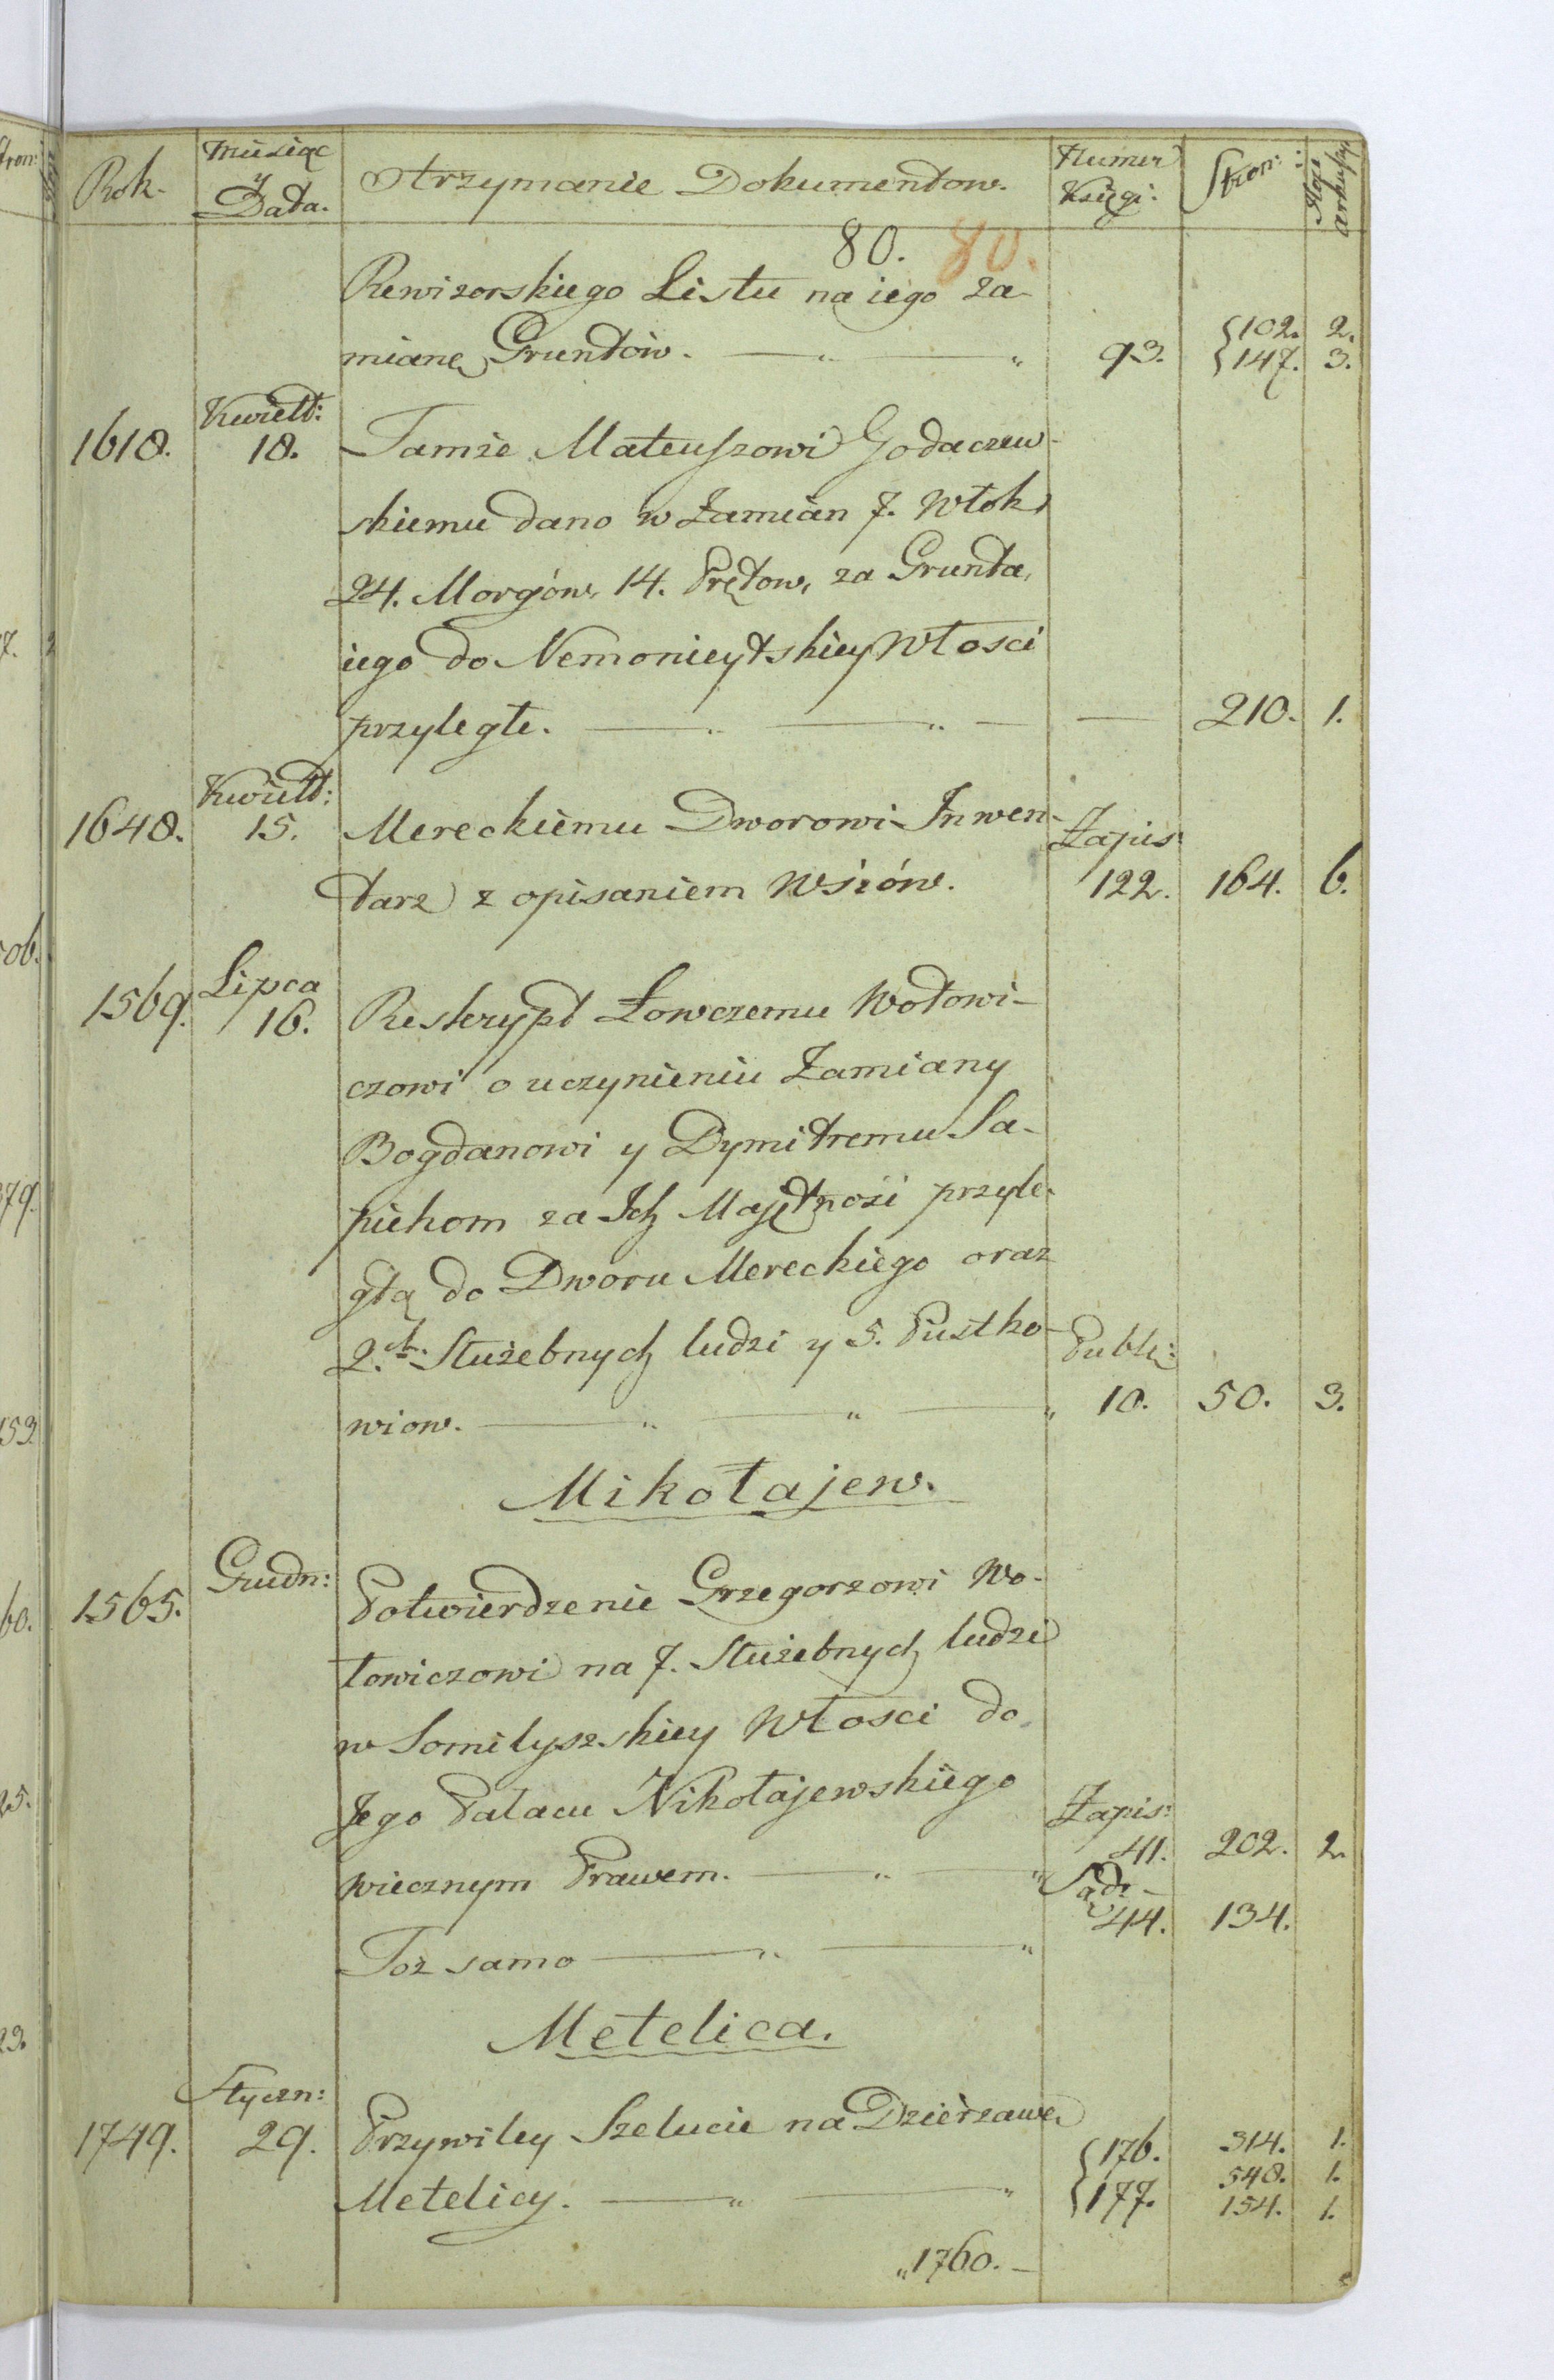 Rok. Miesiąc y Data. Otrzymanie Dokumentow. Numer Księgi. Stron: Ilość arkuszy
80. 80.
Rewizorskiego Listu na iego za-
mianę Gruntów. 93. {102. 2.
{147. 3.
1618. Kwiett: 18. Tamże Mateuszowi Godaczew-
skiemu dano w Zamian 7. Włok
24. Morgów, 14. Prętow, za Grunta,
iego do Nemonieytskiey Włosci
przyległe. 210. 1.
1648. Kwiett: 15. Mereckiemu Dworowi Inwen-
tarz z opisaniem Wsiów. Zapis: 122. 164. 6.
1569. Lipca 16. Reskrypt Łowczemu Wołowi-
czowi o uczynieniu Zamiany
Bogdanowi y Dymitremu Sa-
piehom za Ich Majętnośi przyle-
głą do Dworu Mereckiego oraz
2.ch Służebnych ludzi y 5. Pustko-
wiow. Publ: 10. 50. 3.
Mikołajew.
1565. Grudn: Potwierdzenie Grzegorzowi Wo-
łowiczowi na 7. Służebnych ludzi
w Somilyszskiey Włosci do
Jego Pałacu Nikołajewskiego
wiecznym Prawem. Zapis: 41. 202. 2.
Toż samo Sąd: 44. 134.
Metelica.
1749. Styczn: 29. Przywiley Szelucie na Dzierzawę
Metelicy. {176. 314. 1.
548. 1.
{177. 154. 1.
1760.